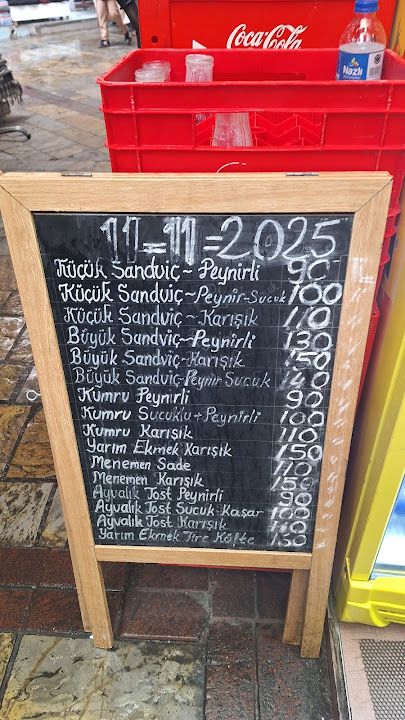 Coca-Cola
Nazlı
11=11=2025
Küçük Sandviç~Peynirli 90
Küçük Sandviç~Peynir-Sucuk 100
Küçük Sandviç-Karışık 110
Büyük Sandviç~Peynirli 130
Büyük Sandviç-Karışık 150
Büyük Sandviç-Peynir Sucuk 140
Kumru Peynirli 90
Kumru Sucuklu+Peynirli 100
Kumru Karışık 110
Yarım Ekmek Karışık 150
Menemen Sade 110
Menemen Karışık 150
Ayvalık Tost Peynirli 90
Ayvalık Tost Sucuk-Kaşar 100
Ayvalık Tost Karışık 110
Yarım Ekmek Tire Köfte 150